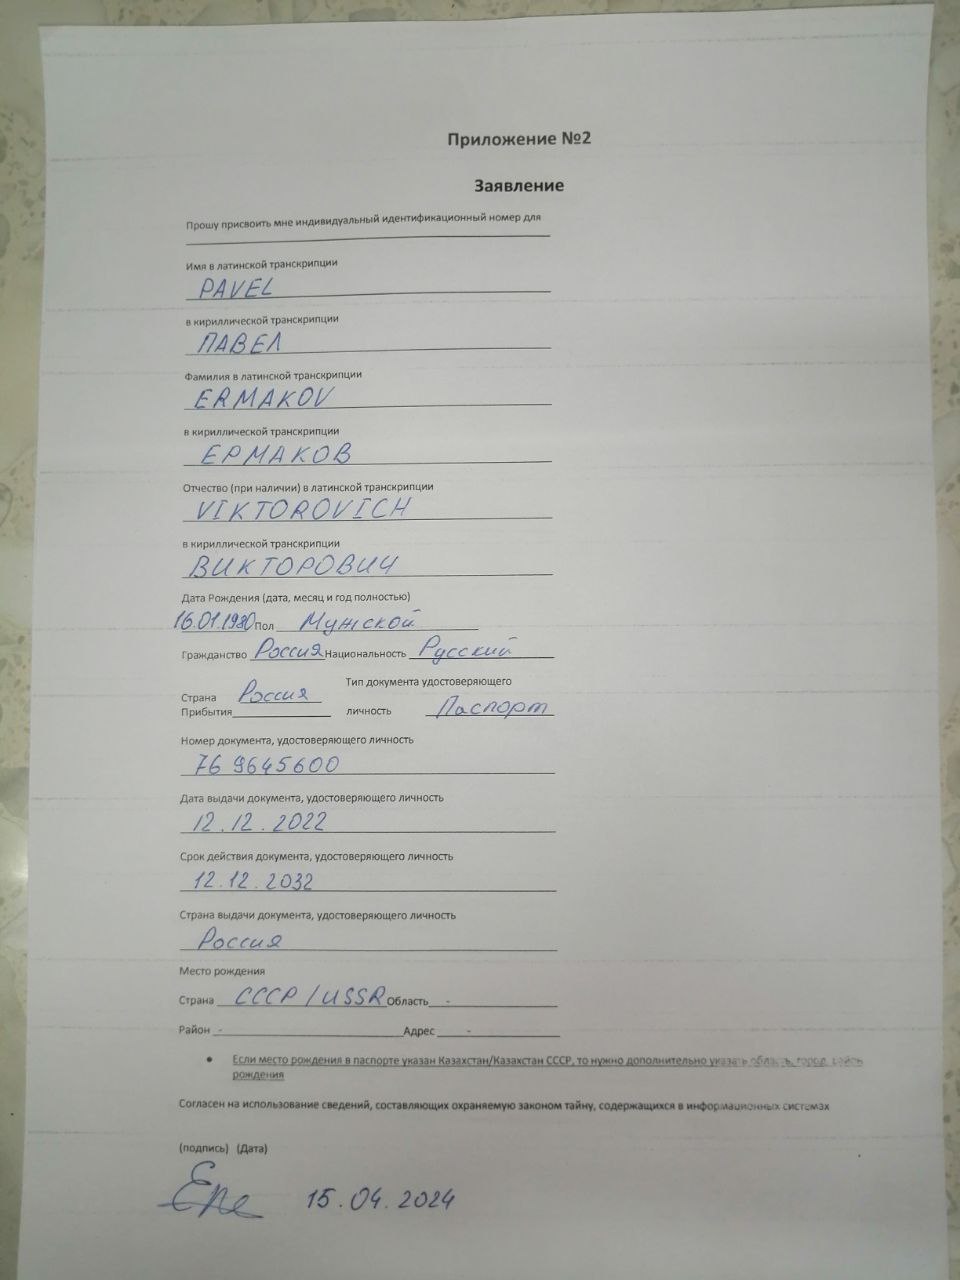 Приложение №2
Заявление
Прошу присвоить мне индивидуальный идентификационный номер для
Имя в латинской транскрипции
PAVEL
в кириллической транскрипции
ПАВЕЛ
Фамилия в латинской транскрипции
ERMAKOV
в кириллической транскрипции
ЕРМАКОВ
Отчество (при наличии) в латинской транскрипции
VIKTOROVICH
в кириллической транскрипции
ВИКТОРОВИЧ
Дата Рождения (дата, месяц и год полностью)
16.01.1980 Пол Мужской
Гражданство Россия Национальность Русский
Тип документа удостоверяющего
Страна Россия
Прибытия личность Паспорт
Номер документа, удостоверяющего личность
76 9645600
Дата выдачи документа, удостоверяющего личность
12.12.2022
Срок действия документа, удостоверяющего личность
12.12.2032
Страна выдачи документа, удостоверяющего личность
Россия
Место рождения
Страна СССР/USSR Область -
Район - Адрес -
• Если место рождения в паспорте указан Казахстан/Казахстан СССР, то нужно дополнительно указать область, город,
рождения
Согласен на использование сведений, составляющих охраняемую законом тайну, содержащихся в информационных системах
(подпись) (Дата)
15.04.2024